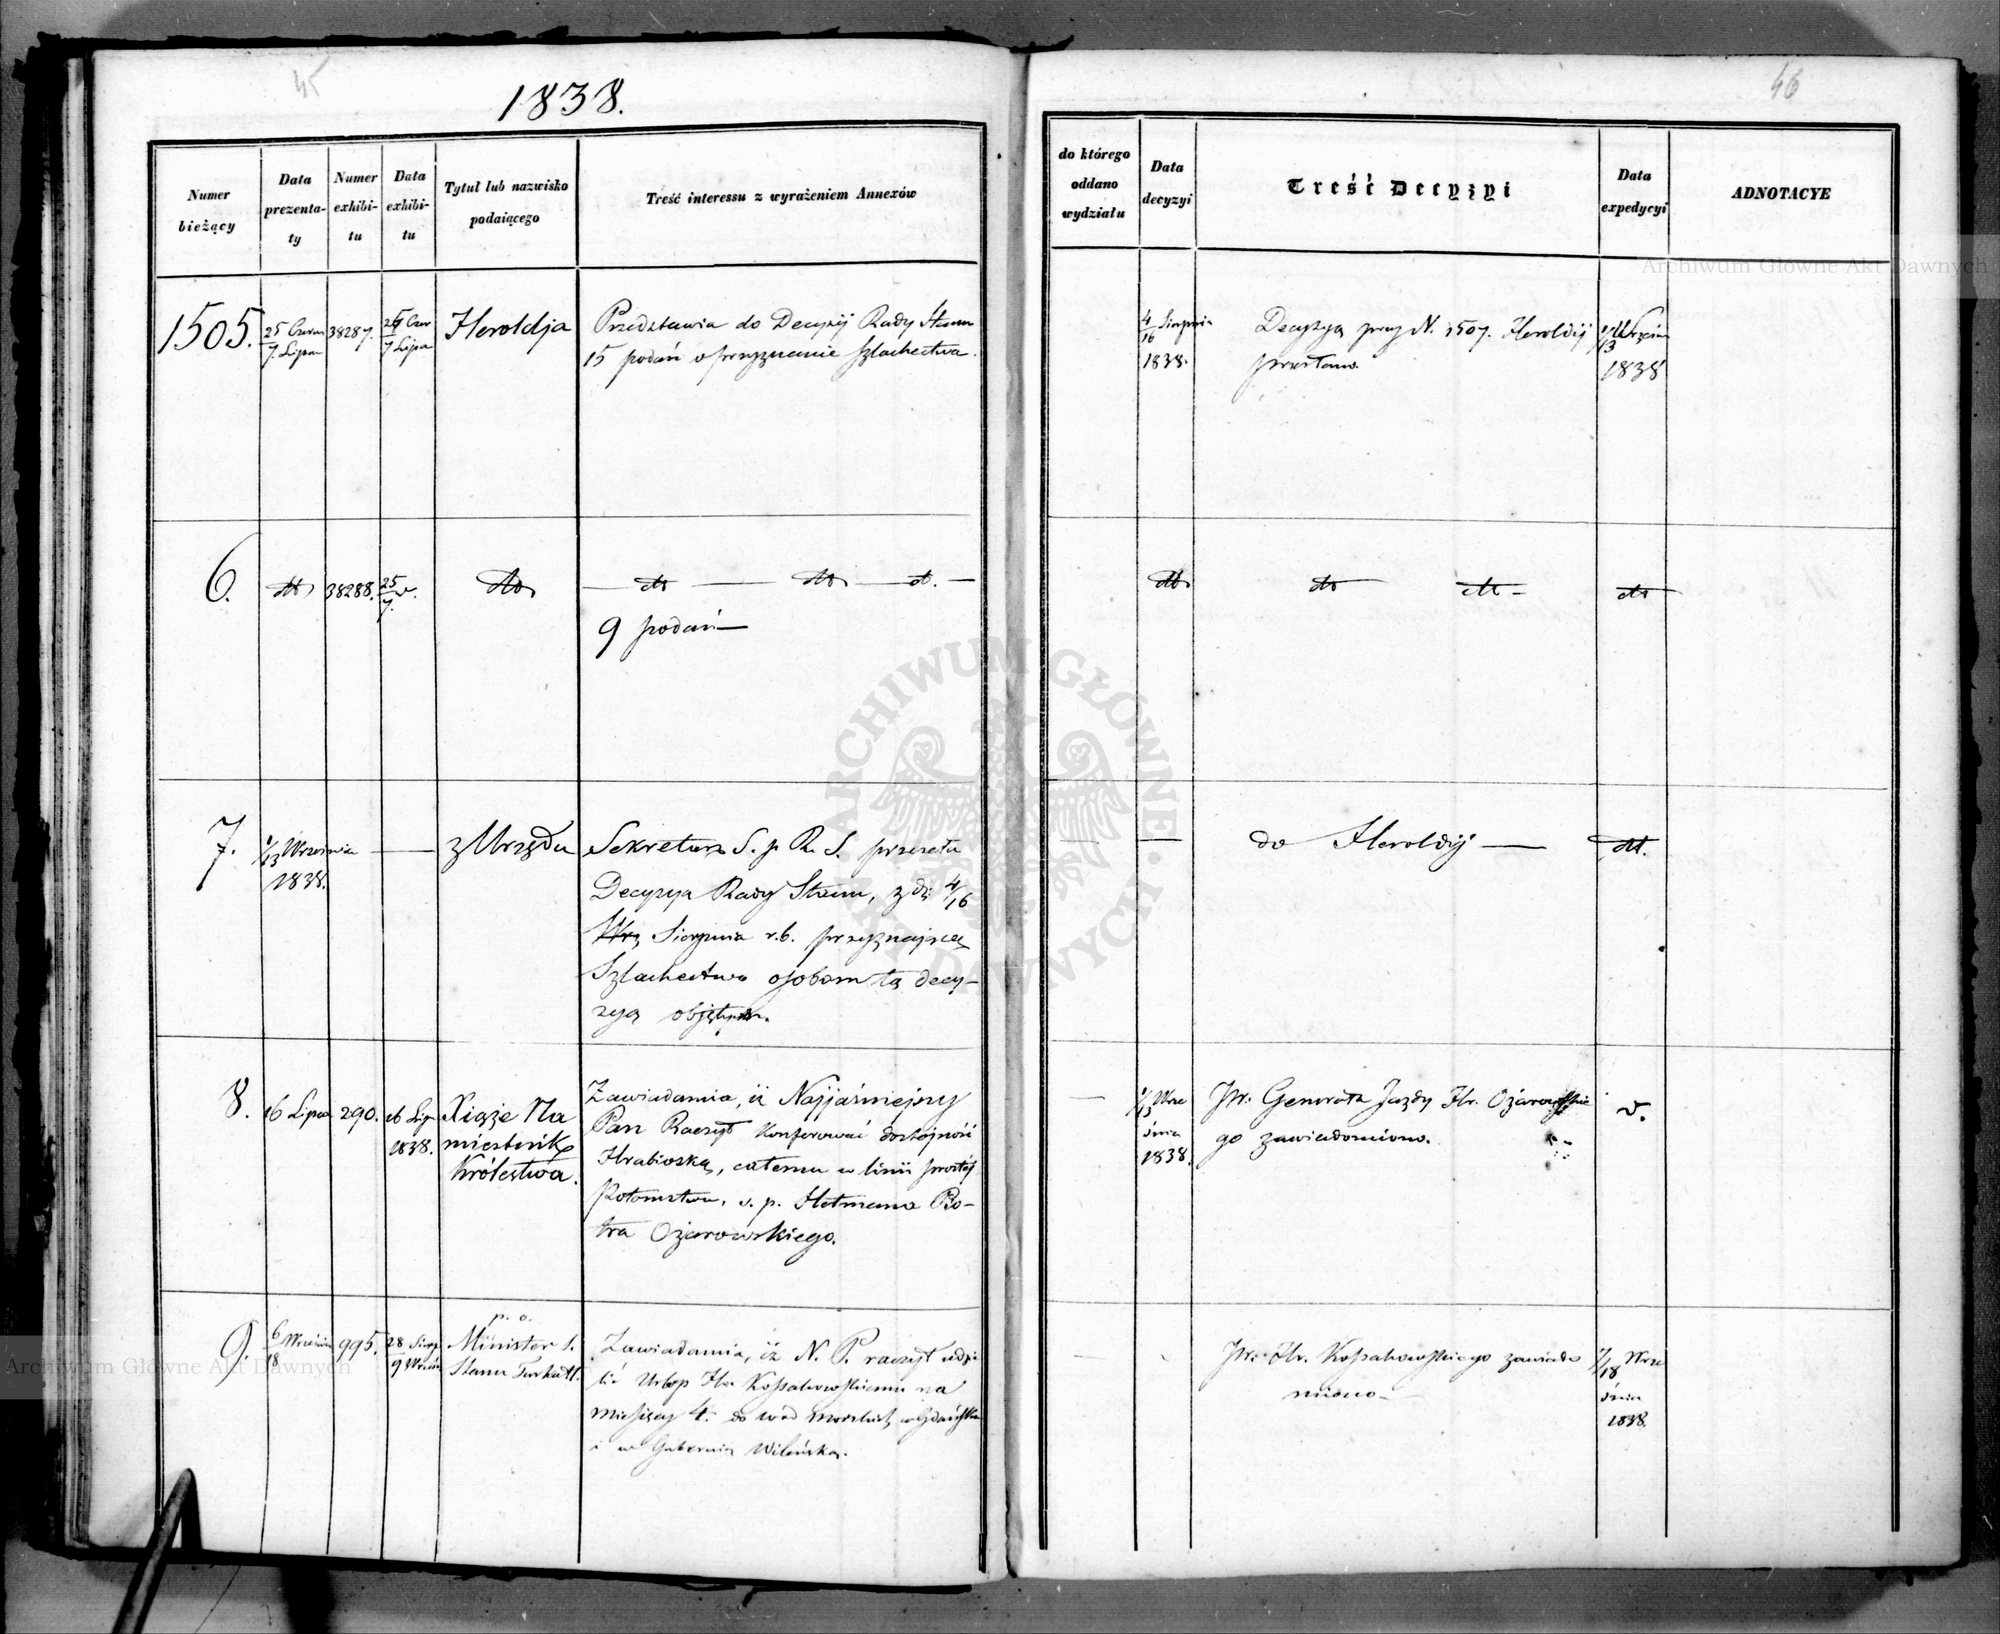 45
1838.
Numer bieżący
Data prezenta-ty
Numer exhibi-tu
Data exhibi-tu
Tytuł lub nazwisko podaiącego
Treść interessu z wyrażeniem Annexów
1505.
25 Czerw
7 Lipca
38287.
25 Czer
7 Lipa
Heroldja
Przedstawia do Decyzij Rady Stanu
15 podań o przyznanie szlachectwa.
6.
dtto
38288.
25/7 v.
dtto
dtto dtto dt.
9 podań
7.
1/13 Września
1838.
z Urzędu
Sekretarz S. p. R. S. przesyła
Decyzya Rady Stanu, z d. 4/16
Wrz Sierpnia r.b. przyznającą
Szlachectwo osobom tą decy-
zyą objętym.
8.
16 Lipca
290.
16 Lip
1838.
Xiąże Na
miestnik
Królestwa.
Zawiadamia, iż Najjaśniejszy
Pan Raczył konferować dostojność
Hrabiowską, całemu w linii prostej
Potomstwu, ś. p. Hetmana Pio-
tra Ożarowskiego.
9.
6/18 Września
995.
28 Sierp
9 Wrześn
p. o.
Minister S.
Stanu Turkułł.
Zawiadamia, iż N. P. raczył udzie
lić Urlop Hr. Kossakowskiemu na
miesięcy 4. do wód morskich w Gdańsku
i w Gubernią Wileńską.
46
do którego oddano wydziału
Data decyzyi
Treść Decyzyi
Data expedycyi
ADNOTACYE
4/16 Sierpnia
1838.
Decyzya przy N. 1507. Heroldij
przesłano.
1/13 Wrześn
1838
dtto
dtto dtto
dtto
do Heroldij
dtt.
1/13 Wrze
śnia
1838.
JW. Generała Jazdy Hr. Ożarowskie
go zawiadomiono.
v.
JW. Hr. Kossakowskiego zawiado
miono
1/18 Wrze
śnia
1838.
Archiwum Główne Akt Dawnych
Archiwum Główne Akt Dawnych
ARCHIWUM GŁÓWNE AKT DAWNYCH